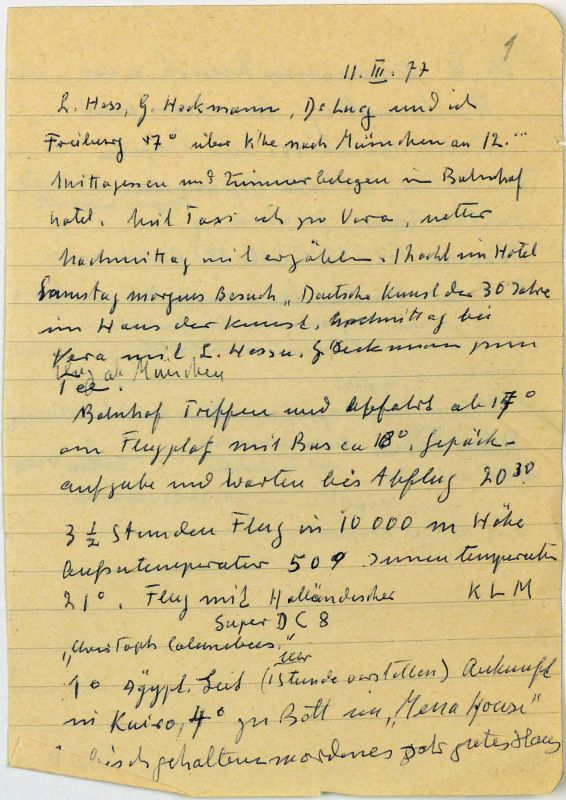 1
11. III. 77
L. Hess, G. Heckmann, und ich
Freiburg 7° über K'he nach München an 12.
Mittagessen und Zimmerbelegen im Bahnhof
hotel. Mit Taxi ich zu Vera, netter
Nachmittag mit erzählen. 1 Nacht im Hotel
Samstag morgens Besuch „Deutsche Kunst der 30 Jahre
im Haus der Kunst. Nachmittag bei
Vera mit L. Hess u. G. Heckmann zum
Tee. Flug ab München
Bahnhof Treffen und Abfahrt ab 17°
am Flugplatz mit Bus ca 18°. Gepäck-
aufgabe und Warten bis Abflug 20 30.
3 1/2 Stunden Flug in 10 000 m Höhe
Außentemperatur 50° Innentemperatur
21°. Flug mit Holländischer KLM
Super DC 8
„Christoph Columbus."
1° Ägypt. Zeit (1 Stunde Uhr vorstellen) Ankunft
in Kairo, 4° zu Bett im „Mena House"
gehaltenes modernes sehr gutes Haus